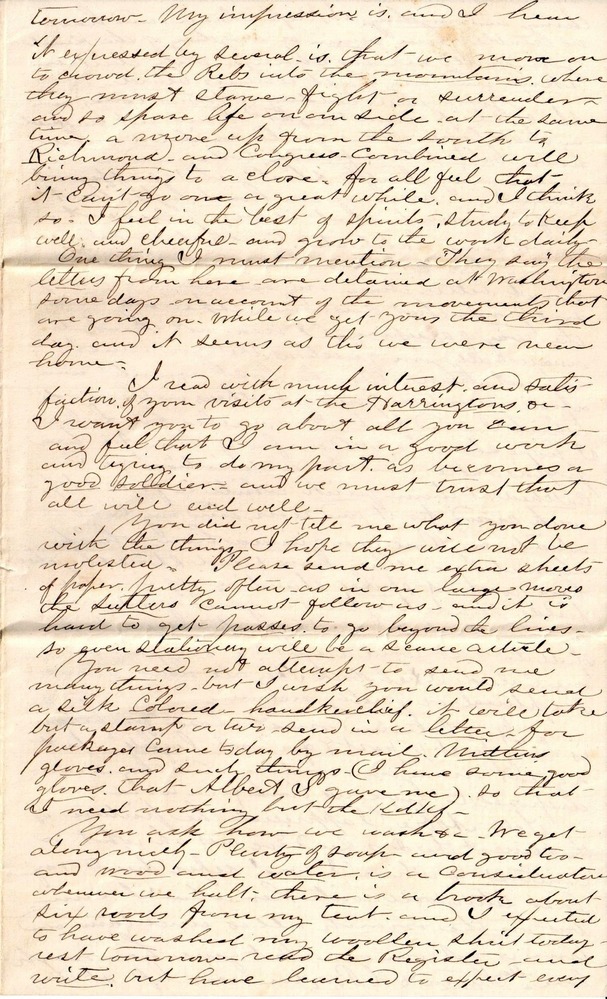 tomorrow - My impression is, and I hear
it expressed by several - is, that we move on
to crowd the Rebs into the mountains where
they must starve - fight or surrender -
and so spare life on our side - at the same
time, a move up from the south to
Richmond - and Congress - combined will
bring things to a close - for all feel that
it can't go on a great while, and I think
so - I feel in the best of spirits, study to keep
well, and cheerful - and grow to the work daily -
One thing I must mention - They say the
letters from here are detained at Washington
some days on account of the movements that
are going on - while we get yours the third
day. and it seems as tho we were near
home -
I read with much interest, and satis
faction, of your visits at the Harringtons, &c -
I want you to go about all you can
and feel that I am in a good work
and trying to do my part, as becomes a
good soldier - and we must trust that
all will end well -
You did not tell me what you done
with the things, I hope they will not be
molested - Please send me extra sheets
of paper, pretty often - as in our large moves
the Sutlers cannot follow us - and it is
hard to get passes to go beyond the lines -
so even stationary will be a scarce article -
You need not attempt to send me
many things - but I wish you would send
a silk colored - handkerchief. it will take
but a stamp or two - send in a letter - for
packages came today by mail.
gloves, and such things - (I have some good
gloves, that Albert I gave me) so that
I need nothing but the Hdkf -
You ask how we wash &c - We get
along nicely - Plenty of soap - and good too -
and wood and water, is a consideration
whenever we halt, there is a brook about
six rods from my tent, and I expected
to have washed my woollen shirt today -
rest tomorrow - read the Register - and
write, but have learned to expect every